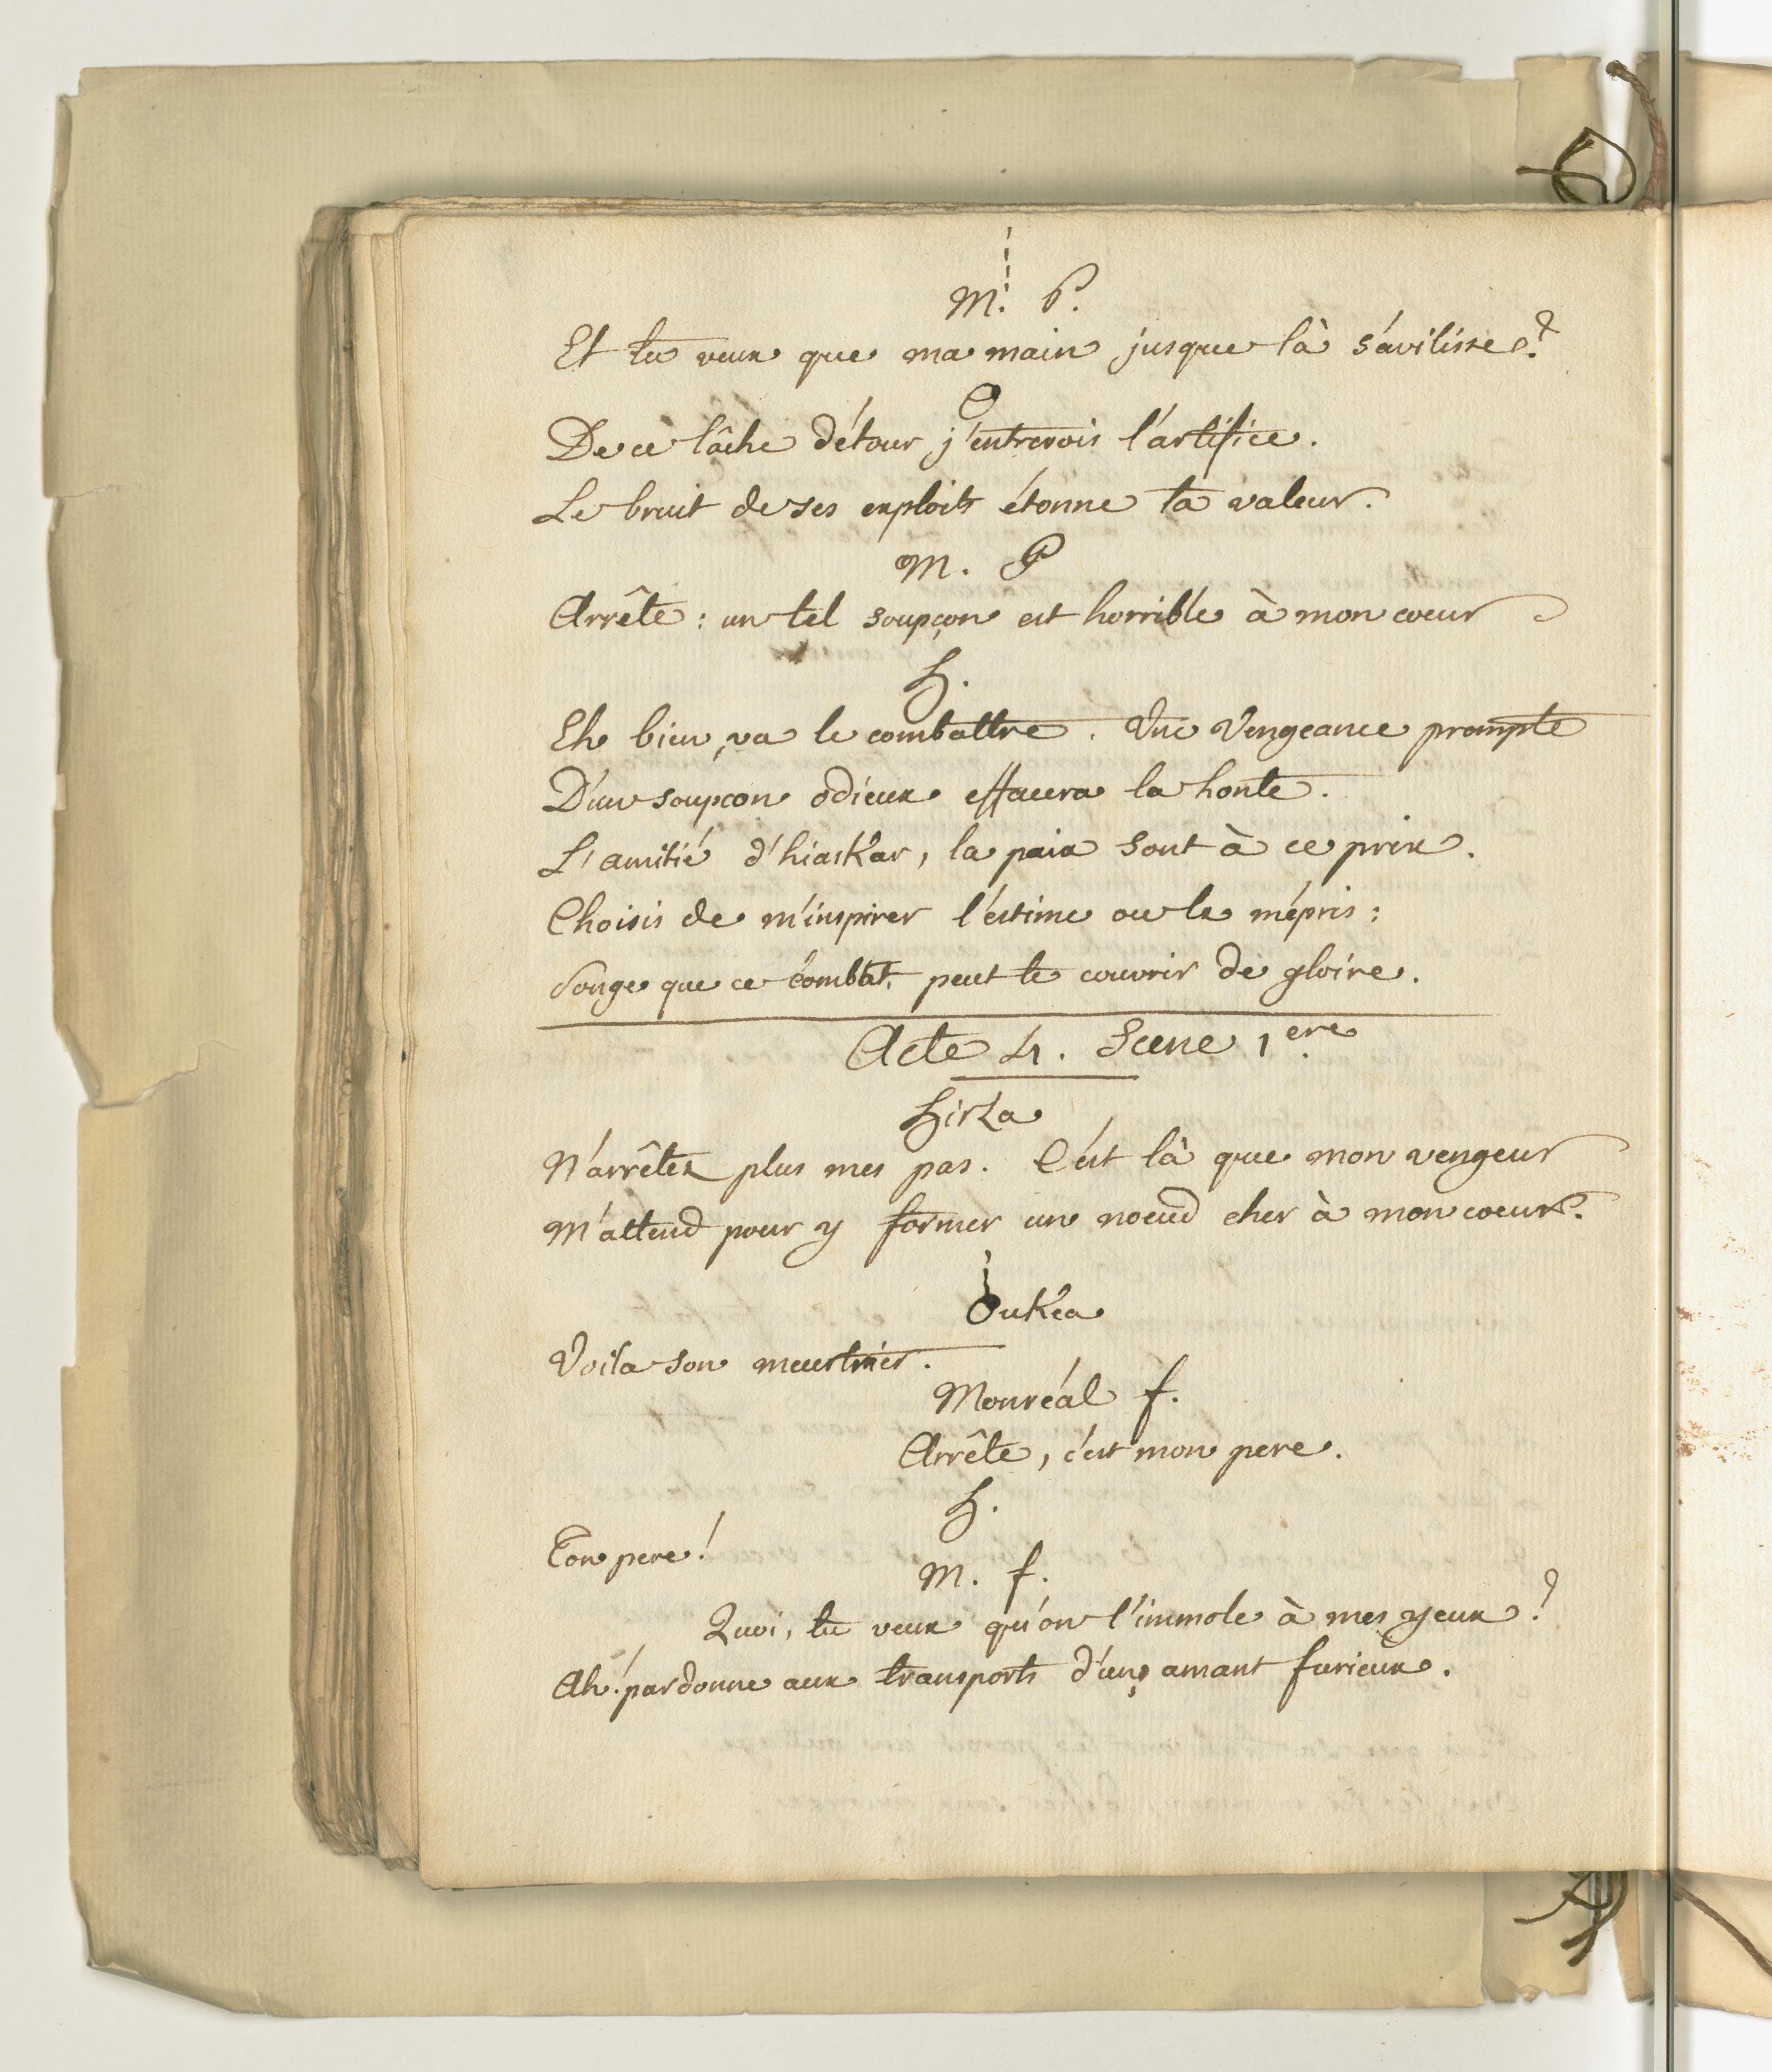 M. P.
Et tu veux que ma main jusque là s'avilisse?
O
De ce lâche détour j'entrevois l'artifice.
Le bruit de ses exploits étonne ta valeur.
M. P
Arrête : un tel soupçon est horrible à mon coeur
H.
Eh bien, va le combattre. Une Vengeance prompte
D'un soupçon odieux effacera la honte.
L'amitié d'hiaskar, la paix sont à ce prix.
Choisis de m'inspirer l'estime ou le mépris :
Songe que ce combat peut te couvrir de gloire.
Acte 4. Scene 1ere
hirza
N'arrêtez plus mes pas. C'est là que mon vengeur
M'attend pour y former un noeud cher à mon coeur.
Oukéa
Voila son meurtrier.
Monréal f.
Arrête, c'est mon pere.
h.
Ton pere!
M. f.
Quoi, tu veux qu'on l'immole à mes yeux?
Ah! pardonne aux transports d'un amant furieux.